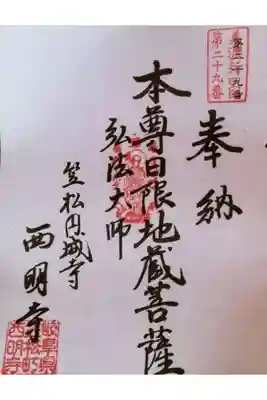 第二十九番
奉納
本尊日限地蔵菩薩
弘法大師
笠松円城寺
西明寺
岐阜県
笠松町
西明寺